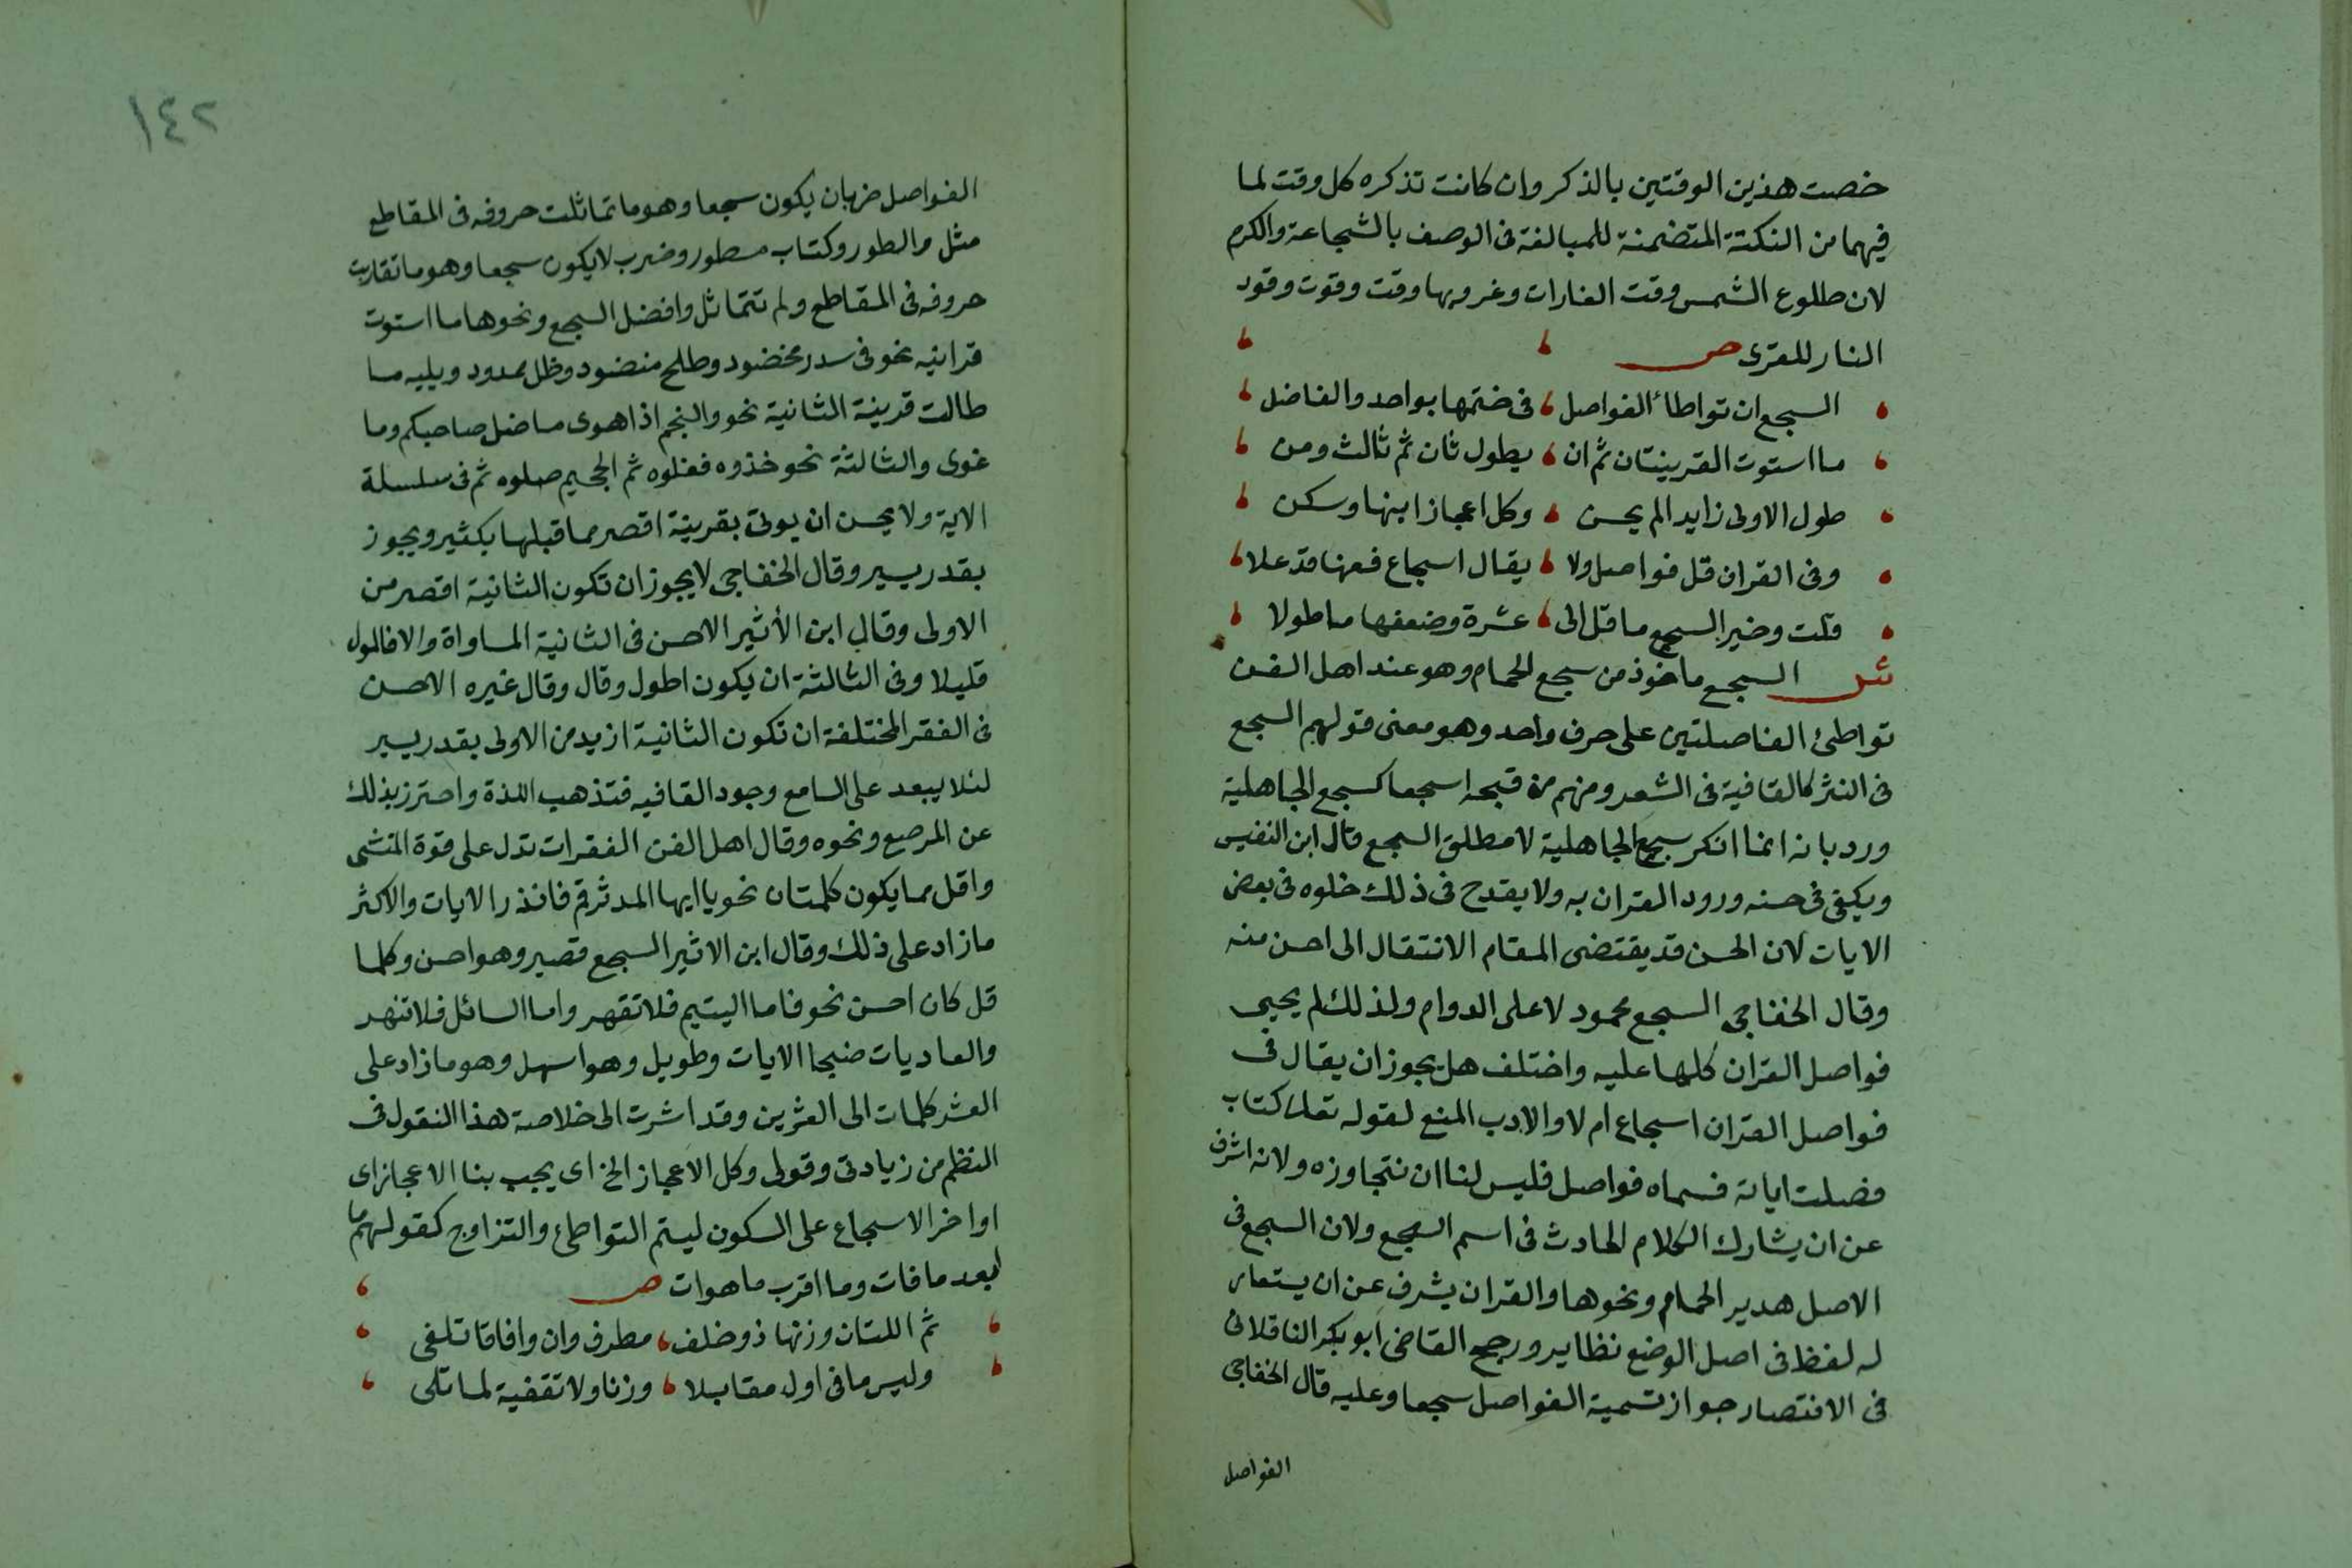 خصت هذين الوقتين بالذكر وان كانت تذكره كل وقت لما
فيهما من النكتة المتضمنة للمبالغة فى الوصف بالشجاعة والكرم
لان طلوع الشمس وقت الغارات وغروبها وقت وقود
النار للقرى ص
السجع ان تواطأ الفواصل فى ختمها بواحد والفاضل
ما استوت القرينتان ثم ان يطول ثان ثم ثالث ومن
طول الاولى زايدا لم يحسن وكل اعجاز ابنها وسكن
وفى القران قل فواصل ولا يقال اسجاع فعنها قد علا
قلت وخير السجع ما قل الى عشرة وضعفها ما طولا
ش السجع ماخوذ من سجع الحمام وهو عند اهل الفن
تواطئ الفاصلتين على حرف واحد وهو معنى قولهم السجع
فى النثر كالقافية فى الشعر ومنهم من قبحه اسجعا كسجع الجاهلية
ورد بانه انما انكر سجع الجاهلية لا مطلق السجع قال ابن النفيس
ويكفى فى حسنه ورود القران به ولا يقدح فى ذلك خلوه فى بعض
الايات لان الحسن قد يقتضى المقام الانتقال الى احسن منه
وقال الخفاجى السجع محمود لا على الدوام ولذلك لم يجيى
فواصل القران كلها عليه واختلف هل يجوز ان يقال فى
فواصل القران اسجاع ام لا والادب المنع لقوله تعلى كتاب
فصلت اياته فسماه فواصل فليس لنا ان نتجاوزه ولانه اشرف
عن ان يشارك الكلام الحادث فى اسم السجع ولان السجع فى
الاصل هدير الحمام ونحوها والقران يشرف عن ان يستعار
له لفظ فى اصل الوضع نظاير ورجح القاضى ابو بكر الناقلانى
فى الانتصار جواز تسمية الفواصل سجعا وعليه قال الخفاجى
الفواصل
١٤٢
الفواصل ضربان يكون سجعا وهو ما تماثلت حروفه فى المقاطع
مثل والطور وكتاب مسطور وضرب لا يكون سجعا وهو ما تقاربت
حروفه فى المقاطع ولم تتماثل وافضل السجع ونحوها ما استوت
قراينه نحو فى سدر مخضود وطلح منضود وظل ممدود ويليه ما
طالت قرينة الثانية نحو والنجم اذا هوى ما ضل صاحبكم وما
غوى والثالثة نحو خذوه فغلوه ثم الجحيم صلوه ثم فى سلسلة
الاية ولا يحسن ان يولى بقرينة اقصر مما قبلها بكثير ويجوز
بقدر يسير وقال الخفاجى لا يجوز ان تكون الثانية اقصر من
الاولى وقال ابن الأثير الاحسن فى الثانية المساواة والا فالمول
قليلا وفى الثالثة ان يكون اطول وقال وقال غيره الاحسن
فى الفقر المختلفة ان تكون الثانية ازيد من الاولى بقدر يسير
لئلا يبعد على السامع وجود القافيه فتذهب اللذة واحترز بذلك
عن المرصع ونحوه وقال اهل الفن الفقرات تدل على قوة المنشى
واقل مما يكون كلمتان نحو يا ايها المدثر قم فانذر الايات والاكثر
ما زاد على ذلك وقال ابن الاثير السجع قصير وهو احسن وكلما
قل كان احسن نحو فاما اليتيم فلا تقهر واما السائل فلا تنهر
والعاديات ضبحا الايات وطويل وهو اسهل وهو ما زاد على
العشر كلمات الى العشرين وقد اشرت الى خلاصة هذا النقول فى
النظم من زيادتى وقولى وكل الاعجاز الخ اى يجب بنا الاعجاز اى
اواخر الاسجاع على السكون ليتم التواطئ والتزاوج كقولهم ما
ابعد ما فات وما اقرب ما هوات ص
ثم اللتان وزنها ذو خلف مطرف وان وافاقا تلفى
وليس ما فى اول مقابلا وزنا ولا تقفية لما تلى